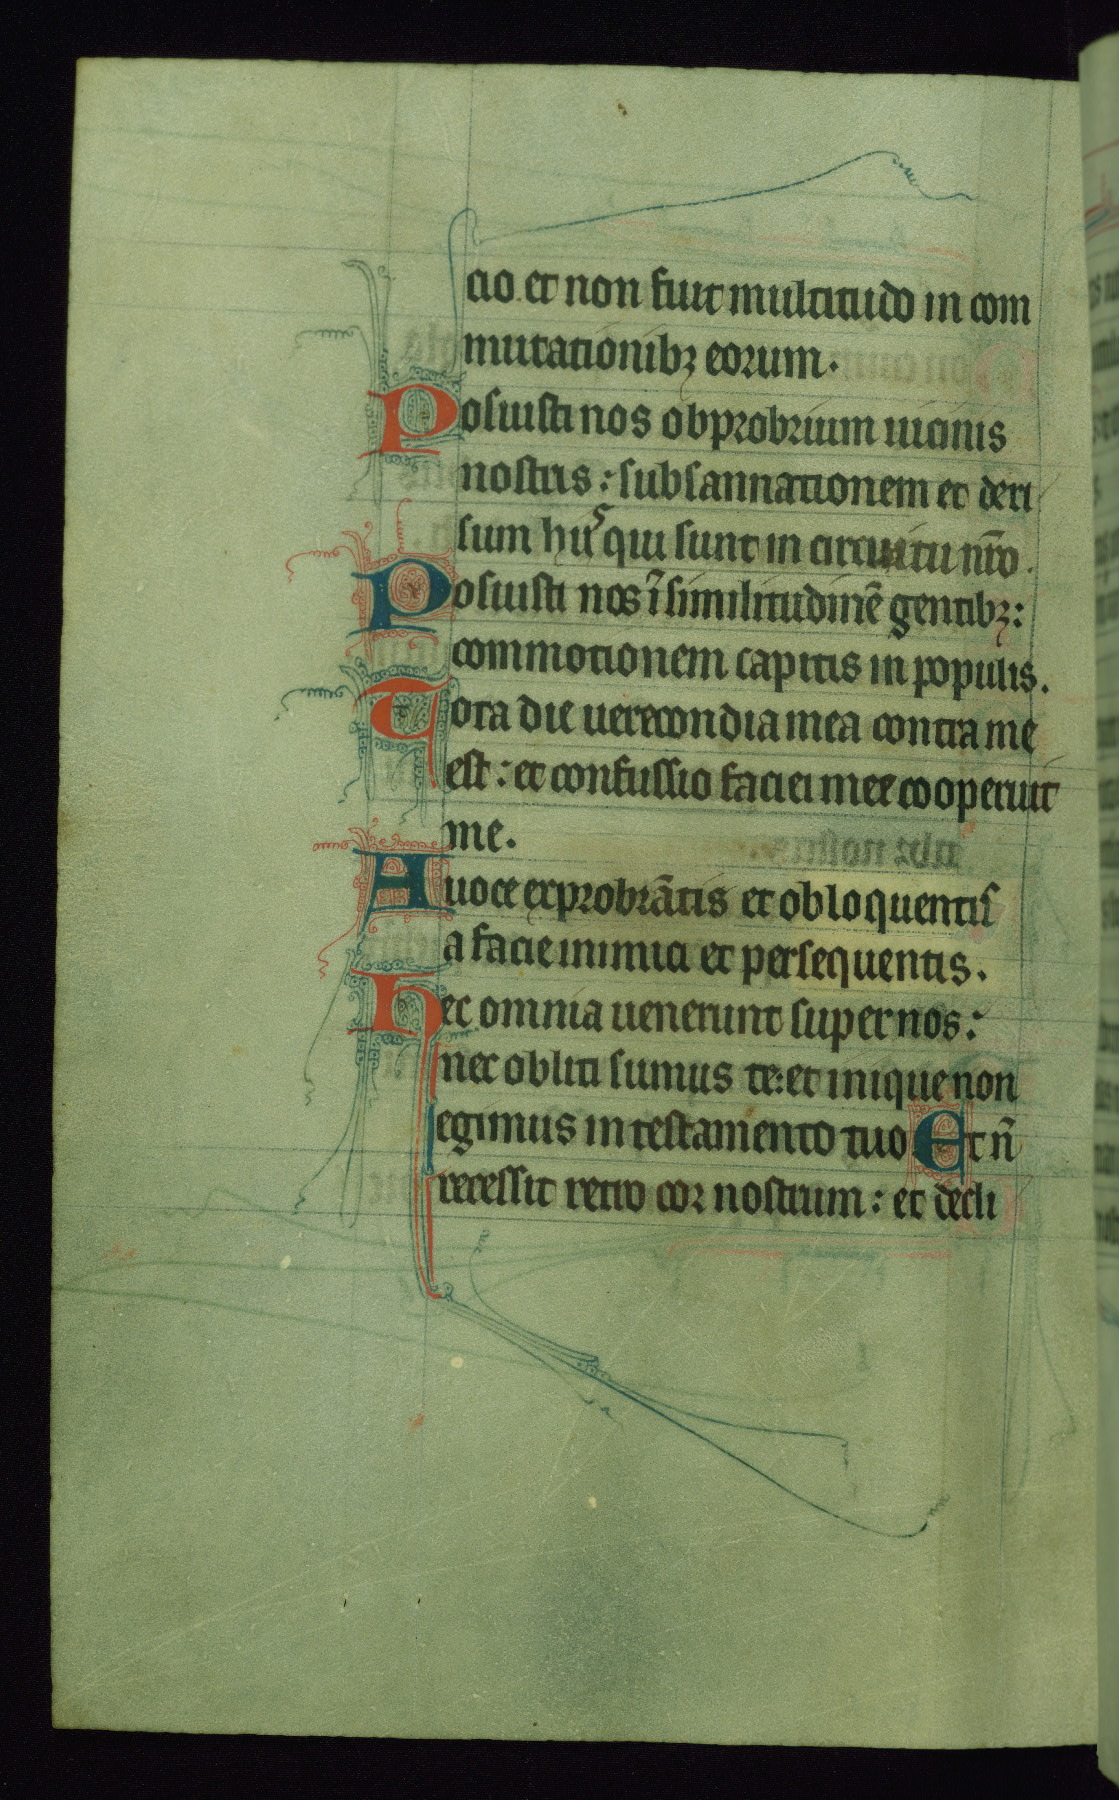 cio. et non fuit multitudo in com
mutationibꝫ eorum.
Posuisti nos obprobrium uicinis
nostris : subsannationem et deri
sum hiis qui sunt in circuitu nr̄o.
Posuisti nos ī similitudinē gentibꝫ:
commotionem capitis in populis.
Tota die uerecondia mea contra me
est : et confussio faciei mee cooperuit
me.
A uoce exprobrātis et obloquentis
a facie inimici et persequentis.
Hec omnia uenerunt super nos :
nec obliti sumus te: et inique non
egimus in testamento tuo Et n̄
recessit retro cor nostrum : et decli